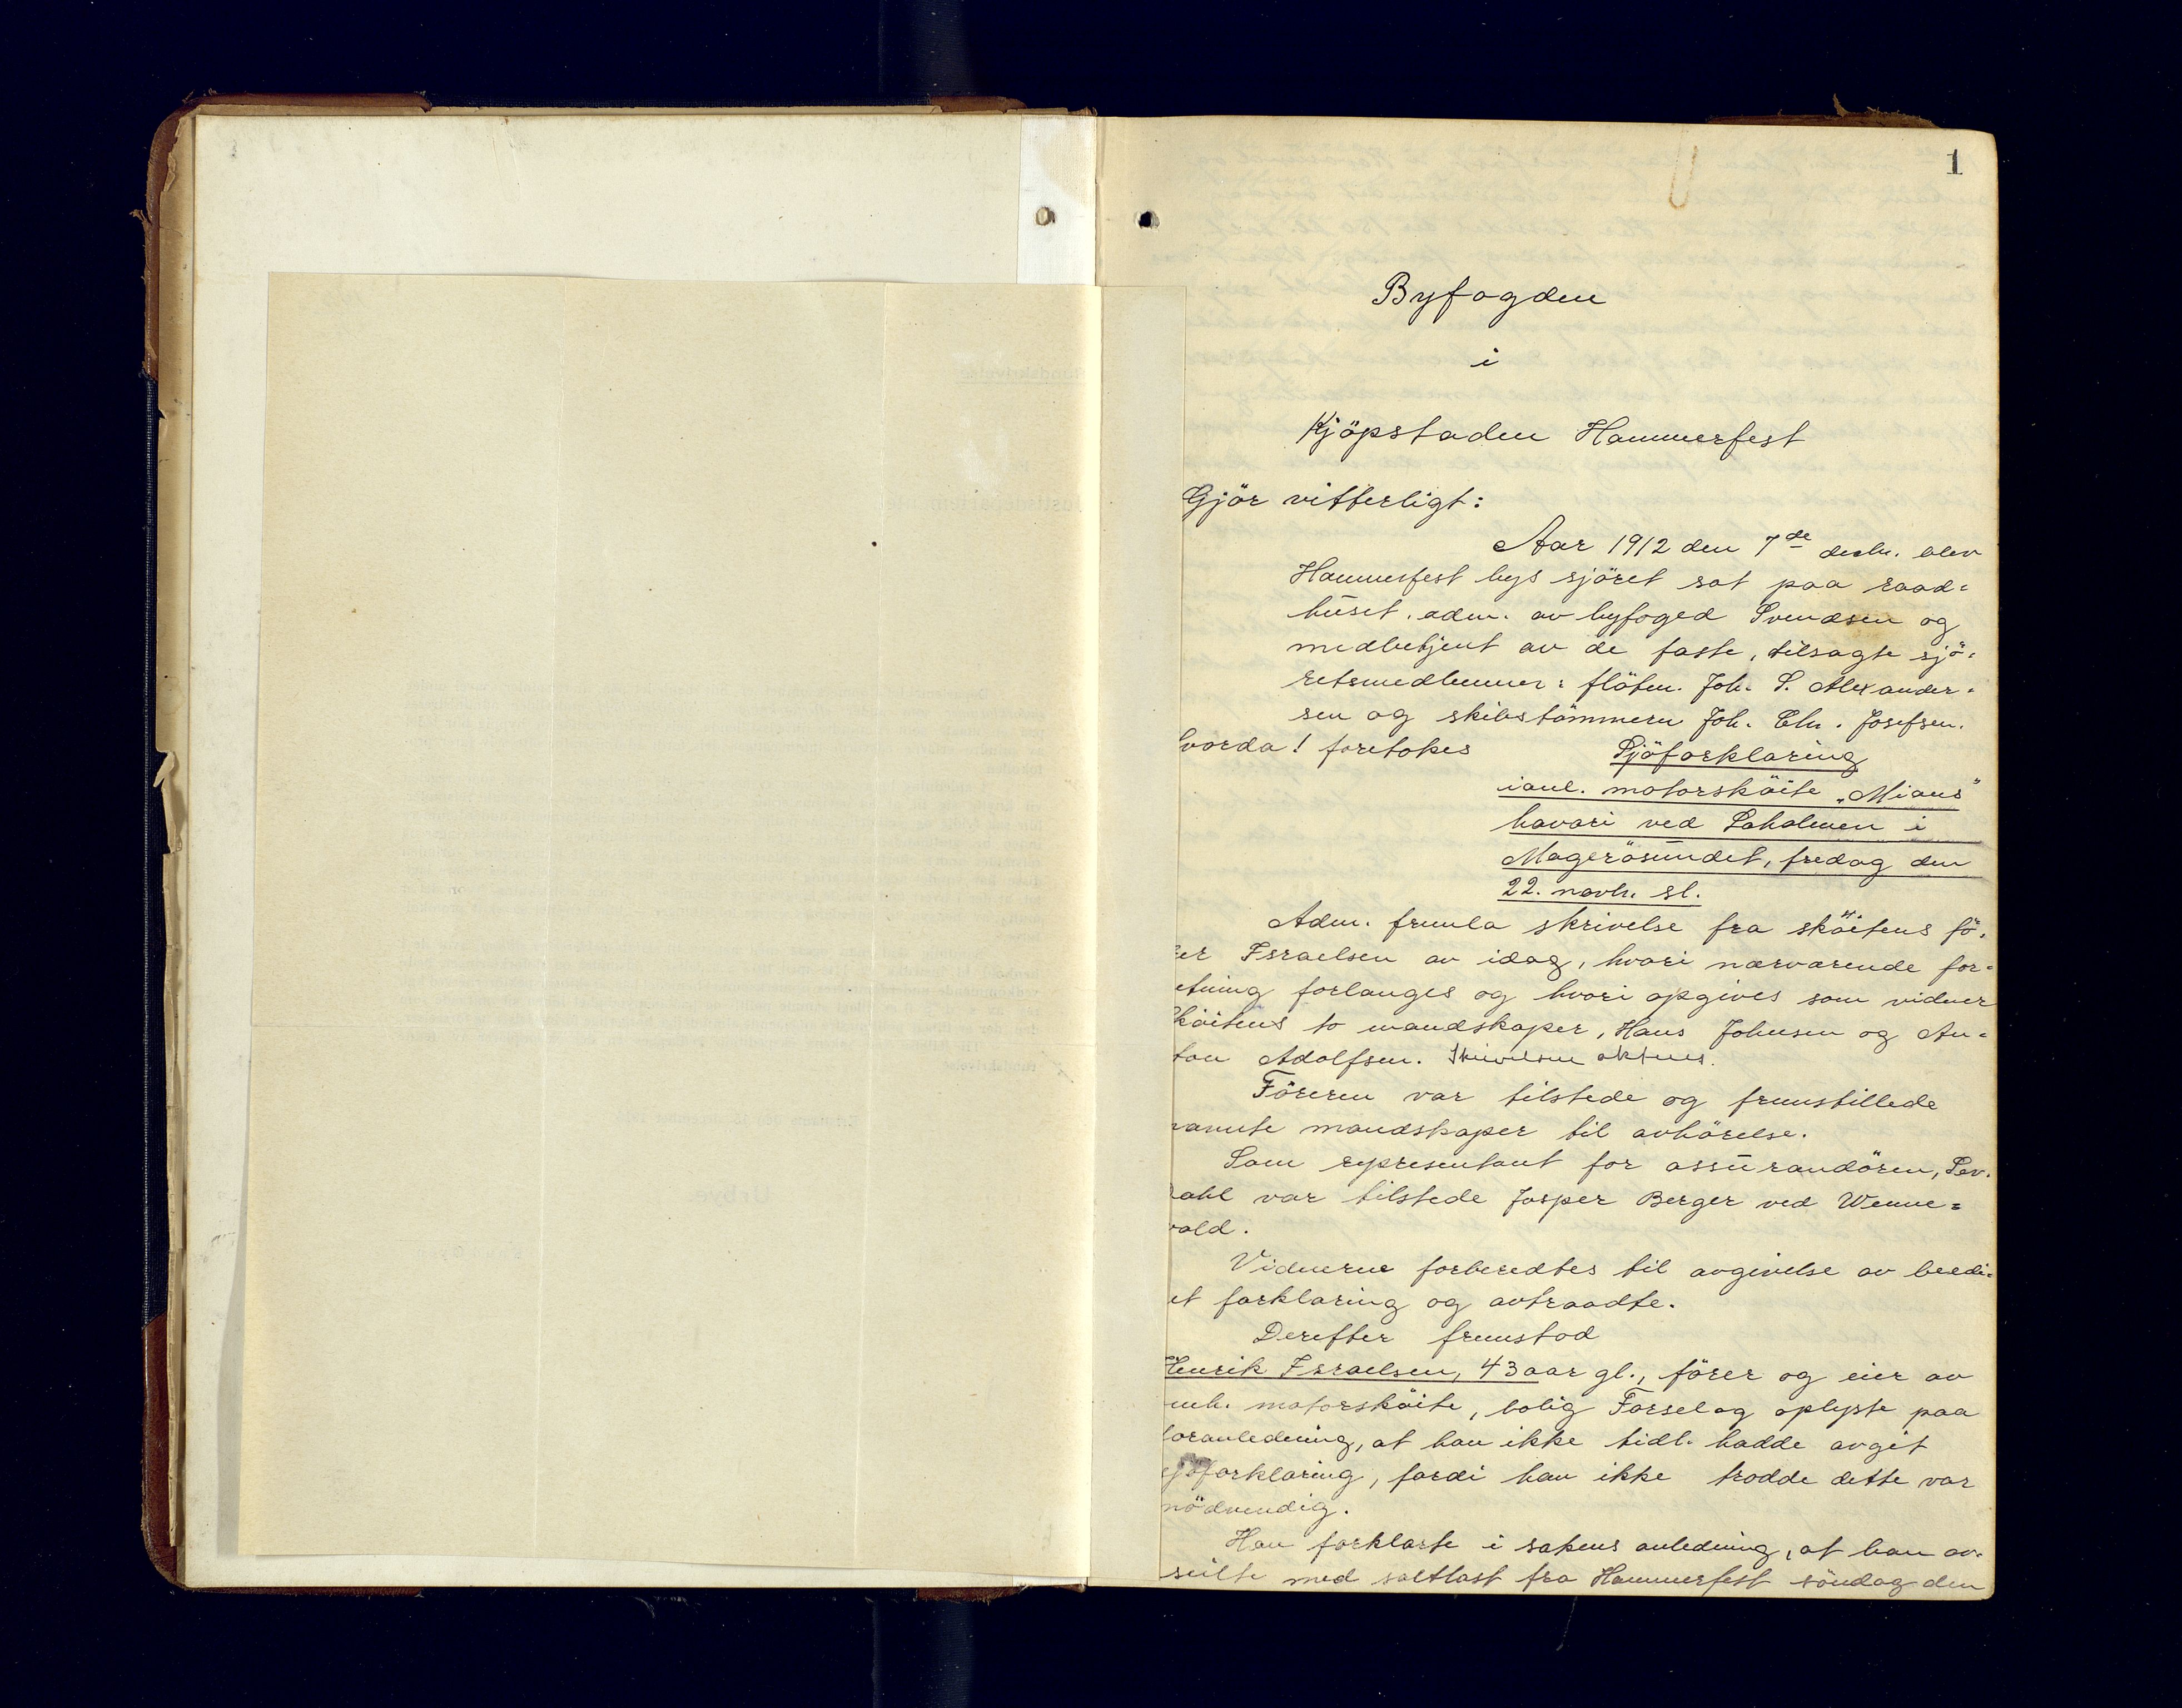 1
Byfogden
i
Kjöpstaden Hammerfest
Gjör vitterligt:
Aar 1912 den 7de decbr. blev
Hammerfest bys sjöret sat paa raad=
huset, adm. av byfoged Svendsen og
medbetjent av de faste, tilsagte sjö=
retsmedlemmer: flötm. Joh. S. Alexander=
sen og skibstömmerm Joh. Chr. Josefsen.
hvorda! foretokes Sjöforklaring
ianl. motorsköite „Mians"
havari ved Saholmen i
Magerösundet, fredag den
22. novbr. sl.
Adm. fremla skrivelse fra sköitens fö=
rer Israelsen av idag, hvori nærværende for=
etning forlanges og hvori opgives som vidner
sköitens to mandskaper, Hans Johnsen og An=
ton Adolfsen. Skrivelsen aktes.
Föreren var tilstede og fremstillede
nævnte mandskaper til avhörelse.
Som representant for assurandören, Sev.
Dahl var tilstede Jesper Berger ved Wenne=
vold.
Vidnerne forberedtes til avgivelse av beedi=
et forklaring og avtraadte.
Derefter fremstod
Henrik Israelsen, 43 aar gl., förer og eier av
motorsköite, bolig Forsøl og oplyste paa
foranledning, at han ikke tidl. hadde avgit
sjöforklaring, fordi han ikke trodde dette var
nödvendig.
Han forklarte i sakens anledning, at han av=
seilte med saltlast fra Hammerfest söndag den